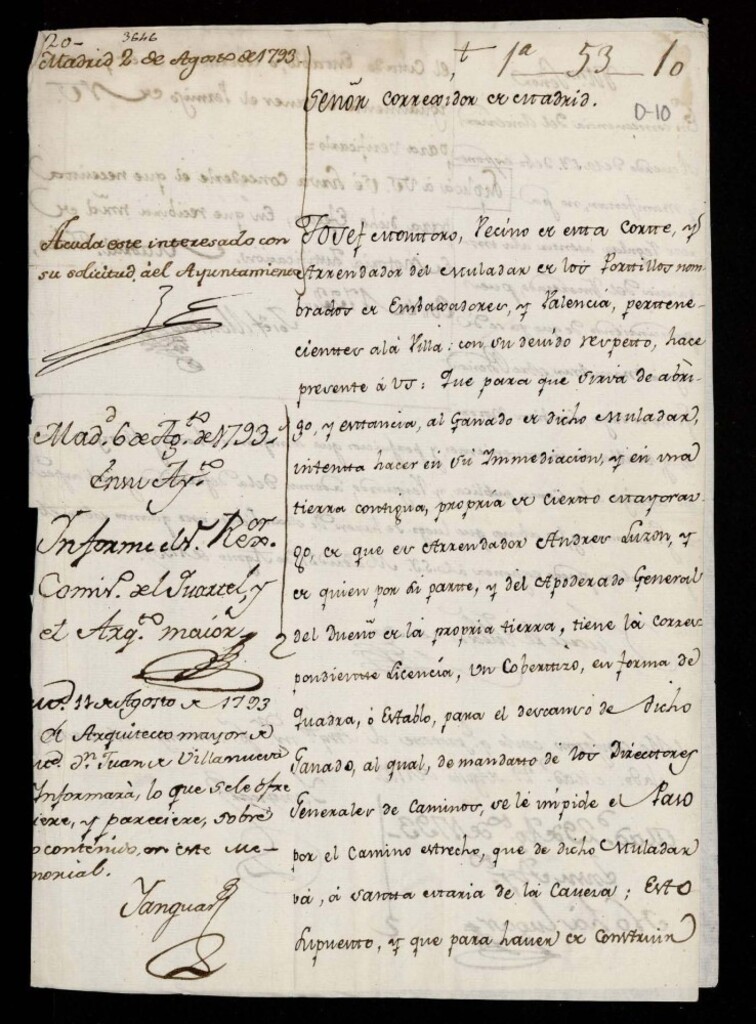 20-
3646
Madrid 2 de Agosto de 1793
Acuda este interesado con
su solicitud, àel Ayuntamiento
Mad.d 6 de Ag.to de 1793
En su Ay.to
Informe el S.r Rex.or
Comis.o del Quartel, y
el Arq.to maior
11 de Agosto de 1793
El Arquitecto mayor de
D.n Juan de Villanueva
Informarà, lo que se le ofre
ciere, y pareciere, sobre
contenido, en este Me-
morial.
Yanguas
t 1a 53 10
D-10
Señor Corregidor de Madrid.
Josef Montoro, Vecino de esta Corte, y
Arrendador del Muladar de los Portillos nom-
brados de Embaxadores, y Valencia, pertene-
cientes ala Villa: con su devido respeto, hace
presente á VS: Que para que sirva de abri-
go, y estancia, al Ganado de dicho Muladar,
intenta hacer en su Immediacion, y en una
tierra contigua, propria de cierto Mayoraz-
go, de que es Arrendador Andres Luzon, y
de quien por si parte, y del Apoderado General
del Dueño de la propria tierra, tiene la corres-
pondiente Licencia, un Cobertizo, en forma de
Quadra, ó Establo, para el descanso de dicho
Ganado, al qual, de mandato de los Directores
Generales de Caminos, se le impide el Paso
por el Camino estrecho, que de dicho Muladar
vá, á Santa Maria de la Caveza; Esto
supuesto, y que para haver de construir